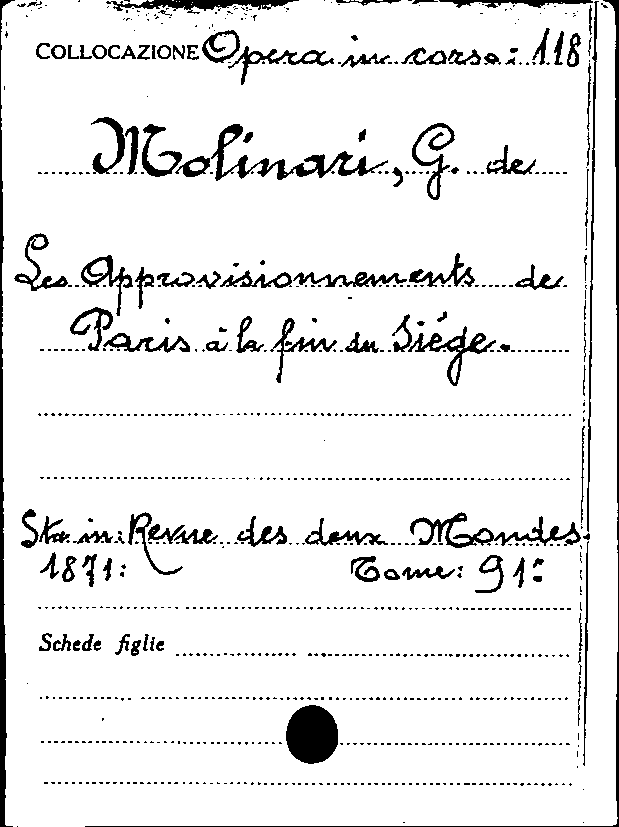 COLLOCAZIONE Opera in corso: 118
Molinari, G. de
Les Approvisionnements de
Paris à la fin du Siége.
Sta in: Revue des deux Mondes.
1871: Tome: 91:
Schede figlie